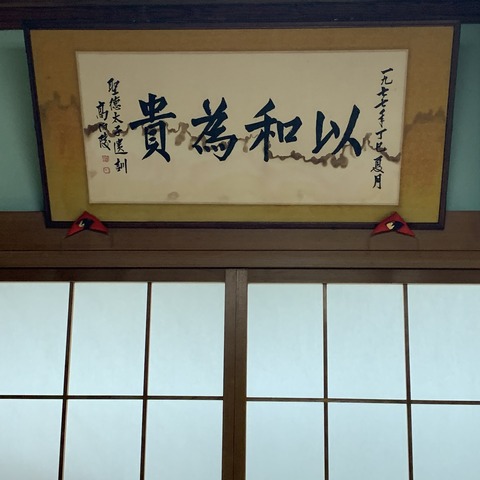 一九七七年丁巳夏月
以和為貴
聖徳太子遺訓